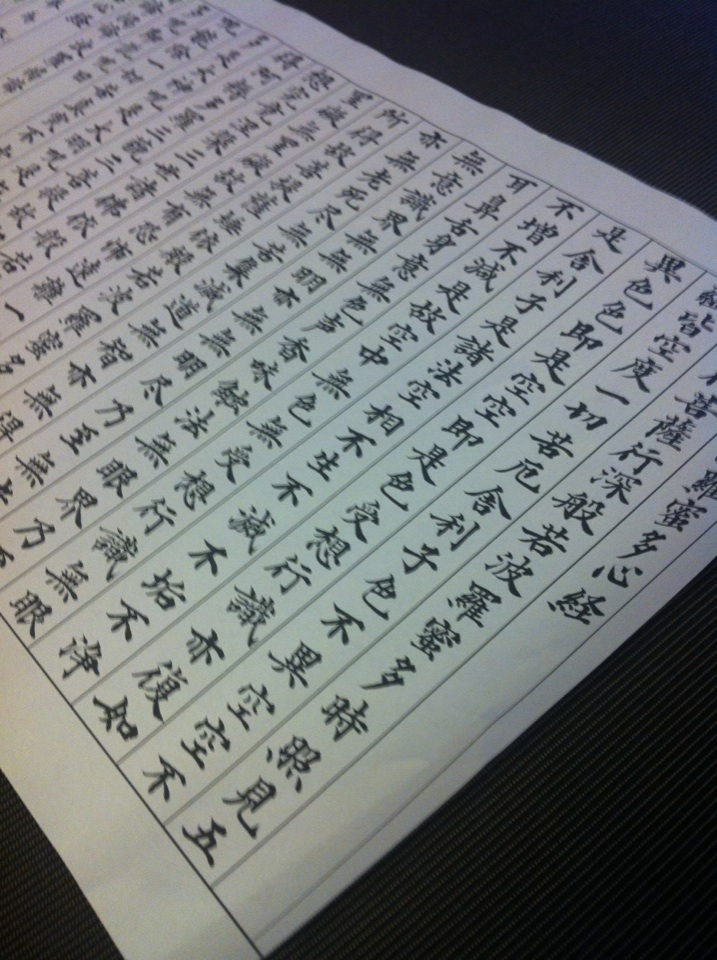 羅蜜多心経
菩薩行深般若波羅蜜多時照見五
蘊皆空度一切苦厄舎利子色不異空空不
異色色即是空空即是色受想行識亦復如
是舎利子是諸法空相不生不滅不垢不浄
不増不減是故空中無色無受想行識無眼
耳鼻舌身意無色声香味触法無眼界乃
無意識界無無明亦無無明尽乃至無
亦無老死尽無苦集滅道無智亦無得
所得故菩提薩埵依般若波羅蜜多
罣礙故無罣礙故無有恐怖遠離一
想究竟涅槃三世諸仏依般若
得阿耨多羅三藐三菩提故
多是大神呪是大明呪是
呪能除一切苦真実不